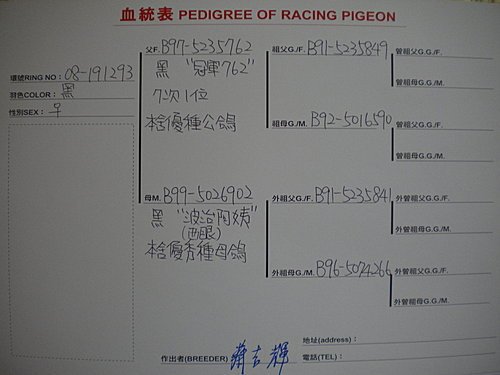 血統表 PEDIGREE OF RACING PIGEON
環號RING NO：08-191293
羽色COLOR：黑
性別SEX：♀
父F. B97-5235762
黑 "冠軍762"
7次1位
本舍優種公鴿
母M. B99-5026902
黑 "波治阿姨"
(西眼)
本舍優秀種母鴿
祖父G./F. B91-5235849
祖母G./M. B92-5016590
外祖父G./F. B91-5235841
外祖母G./M. B96-5074266
曾祖父G.G./F.
曾祖母G.G./M.
曾祖父G.G./F.
曾祖母G.G./M.
外曾祖父G.G./F.
外曾祖母G.G./M.
外曾祖父G.G./F.
外曾祖母G.G./M.
作出者(BREEDER)
吉輝
地址(address)：
電話(TEL)：